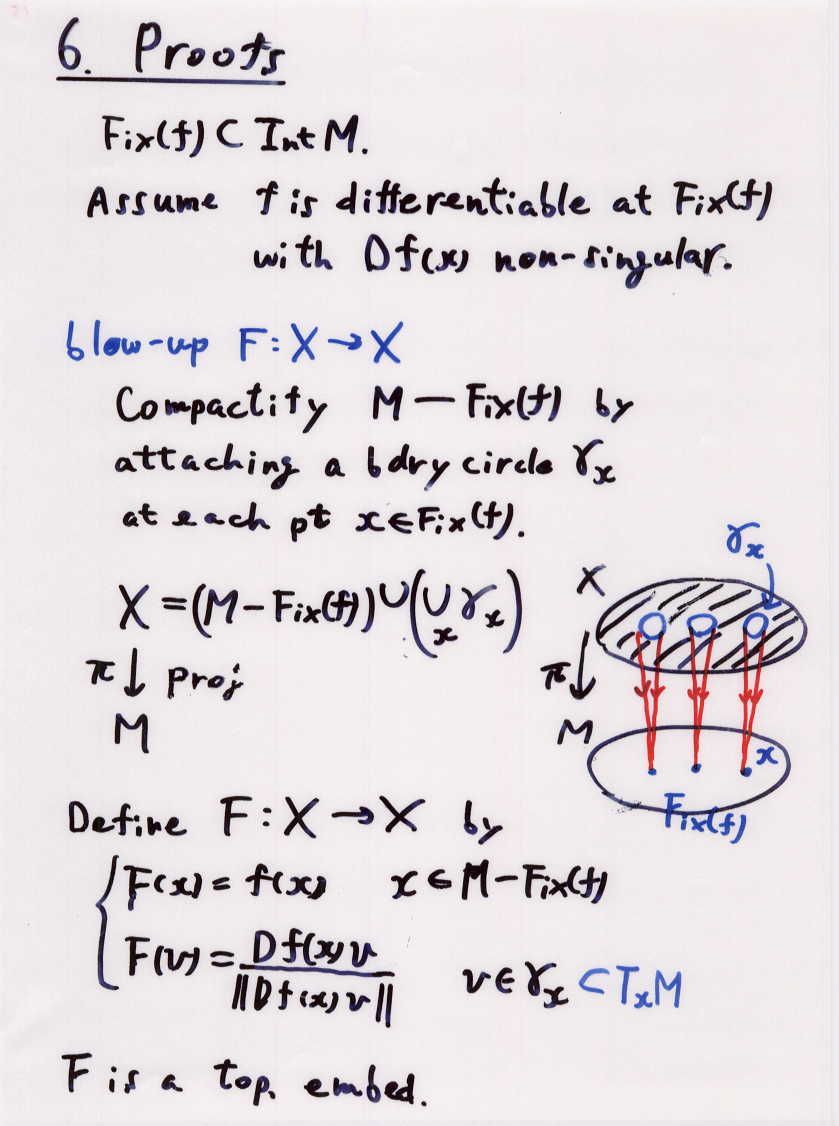 6. Proofs
Fix(f) ⊂ Int M.
Assume f is differentiable at Fix(f)
with Df(x) non-singular.
blow-up F: X → X
Compactify M — Fix(f) by
attaching a bdry circle γ_x
at each pt x ∈ Fix(f).
X = (M - Fix(f)) ∪ (∪_x γ_x)
π ↓ proj
M
γ_x
X
π ↓
M
x
Fix(f)
Define F: X → X by
{ F(x) = f(x) x ∈ M - Fix(f)
F(v) = Df(x)v / ||Df(x)v|| v ∈ γ_x ⊂ T_xM
F is a top. embed.